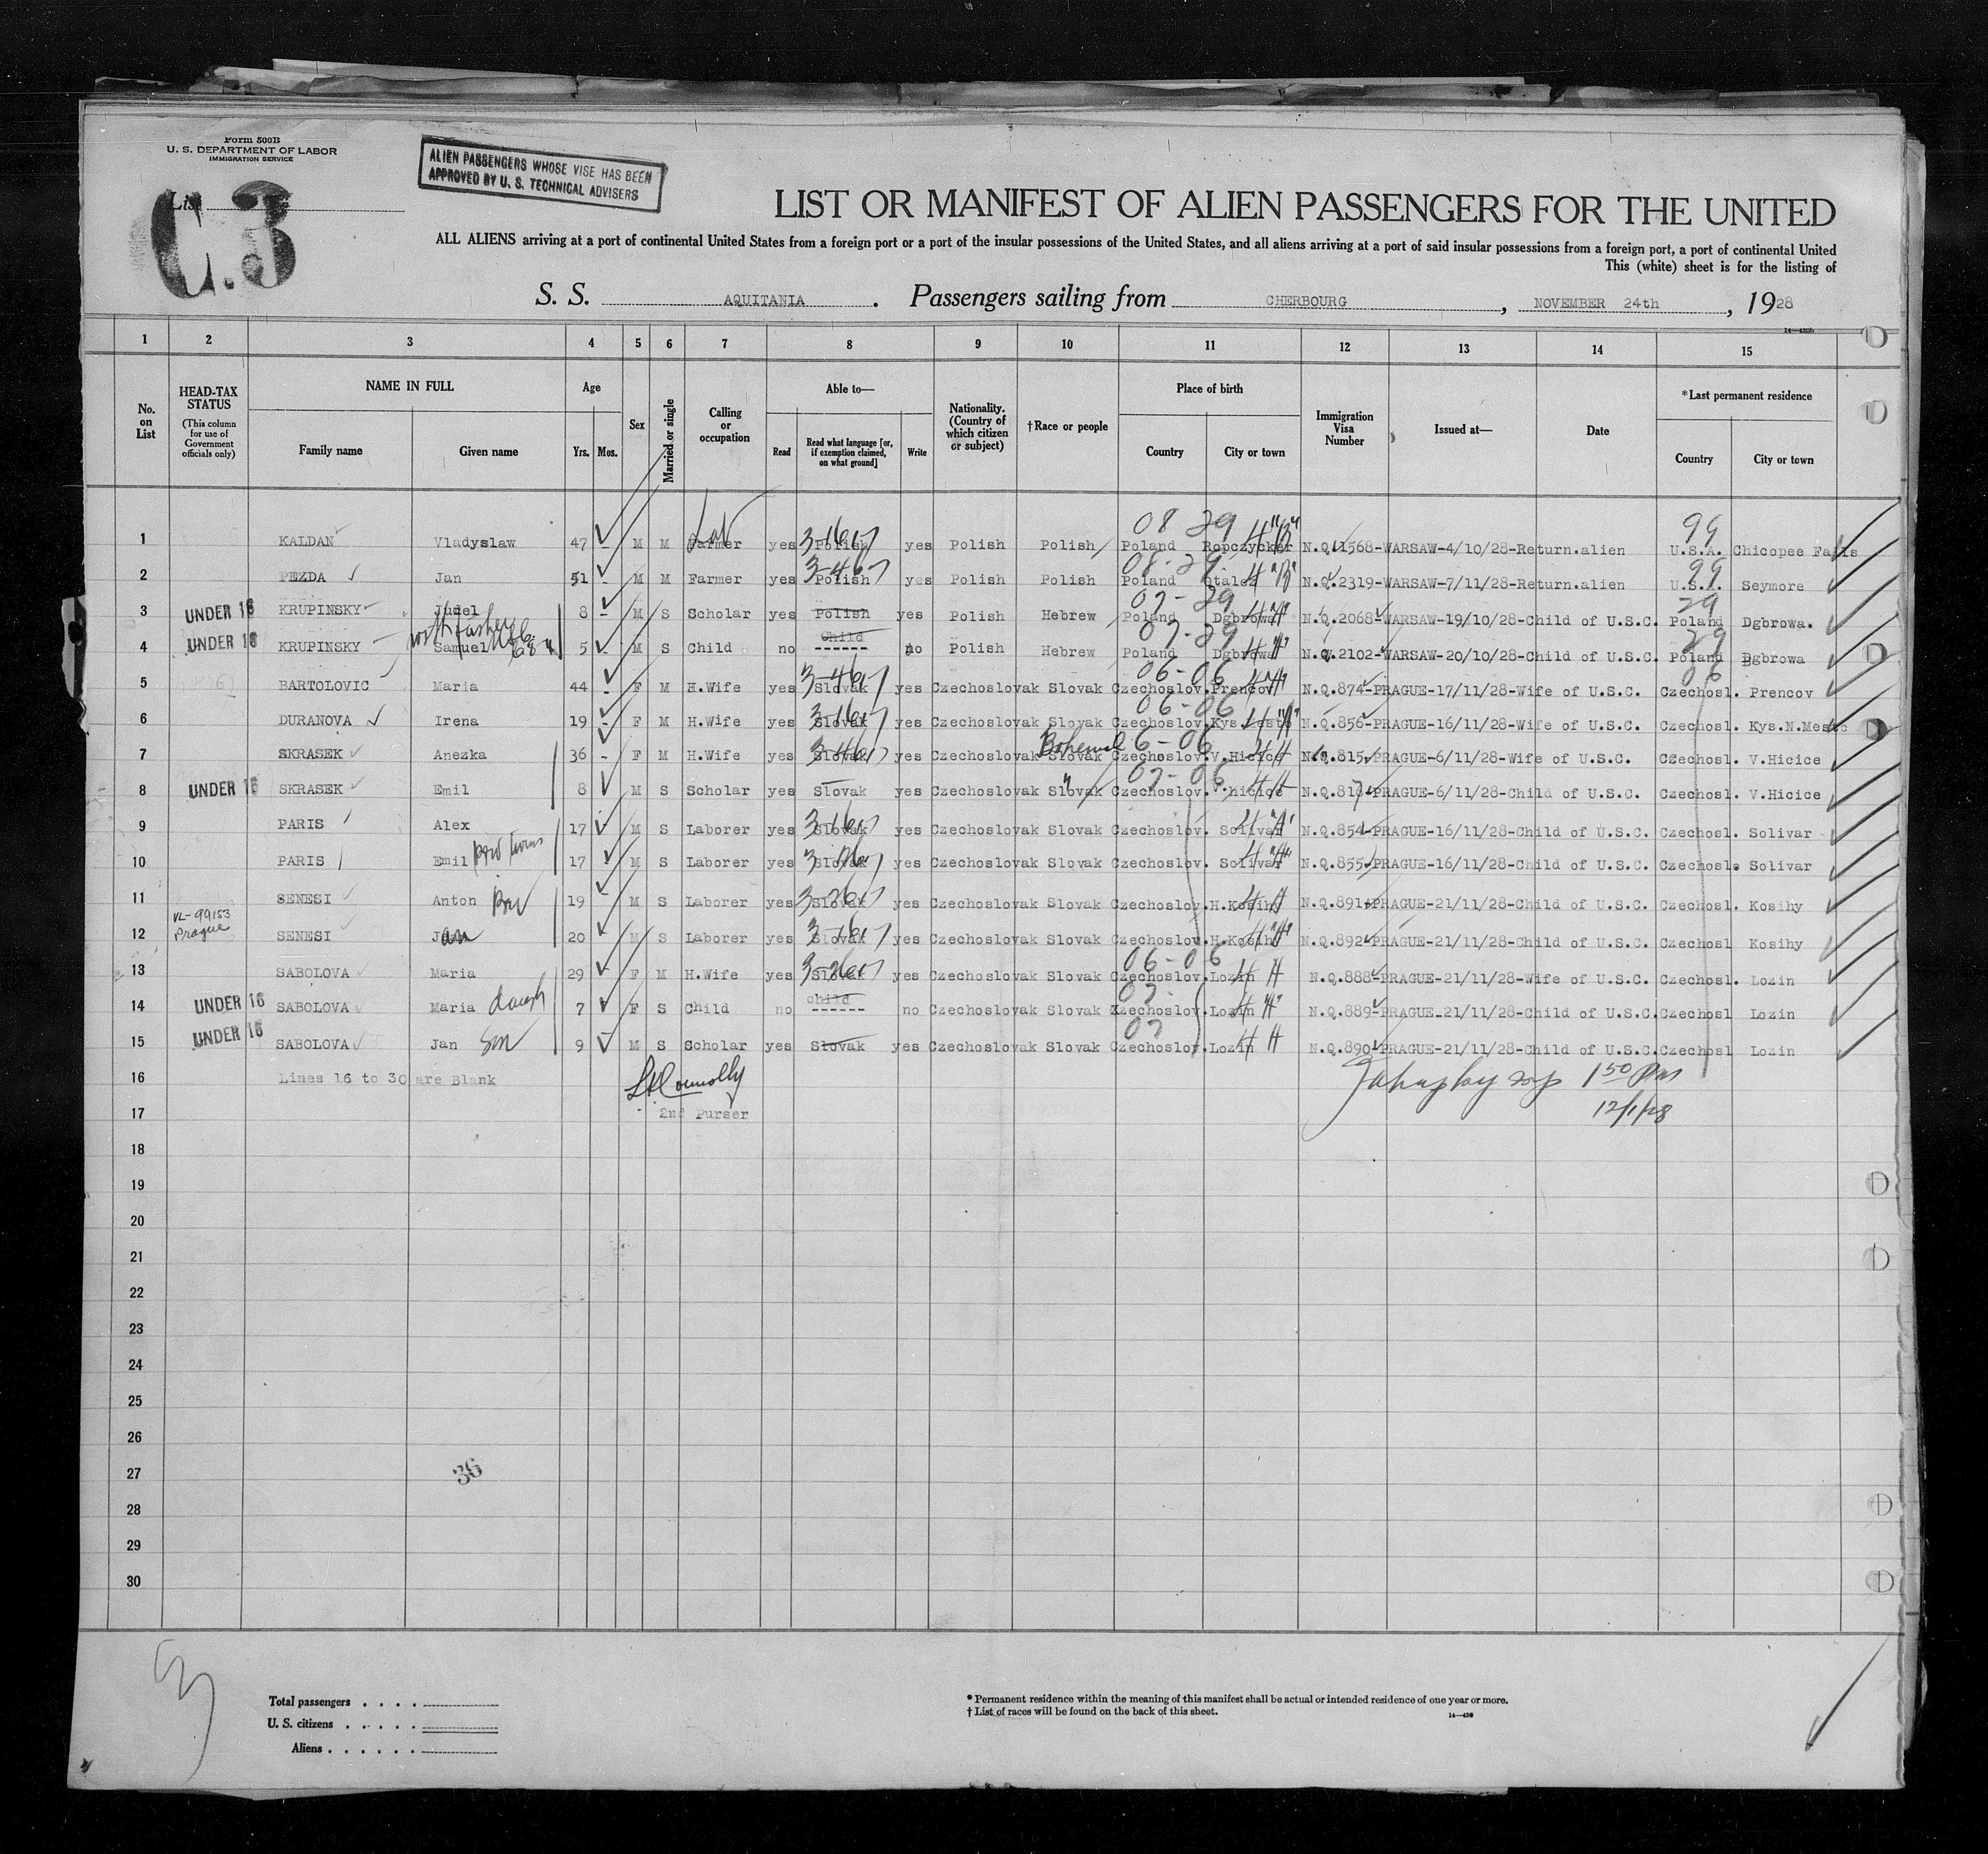 Form 500B
U. S. DEPARTMENT OF LABOR
IMMIGRATION SERVICE
ALIEN PASSENGERS WHOSE VISE HAS BEEN
APPROVED BY U. S. TECHNICAL ADVISERS
List
C.3
LIST OR MANIFEST OF ALIEN PASSENGERS FOR THE UNITED
ALL ALIENS arriving at a port of continental United States from a foreign port or a port of the insular possessions of the United States, and all aliens arriving at a port of said insular possessions from a foreign port, a port of continental United
This (white) sheet is for the listing of
S. S. AQUITANIA . Passengers sailing from CHERBOURG , NOVEMBER 24th , 1928
1 2 3 4 5 6 7 8 9 10 11 12 13 14 15
No. on List
HEAD-TAX STATUS
(This column for use of Government officials only)
NAME IN FULL
Family name Given name
Age
Yrs. Mos.
Sex
Married or single
Calling or occupation
Able to—
Read
Read what language [or, if exemption claimed, on what ground]
Write
Nationality. (Country of which citizen or subject)
†Race or people
Place of birth
Country City or town
Immigration Visa Number
Issued at—
Date
*Last permanent residence
Country City or town
08 29 99
1 KALDAN Vladyslaw 47 - M M Farmer yes Polish yes Polish Polish Poland Ropczycker N.Q.1568-WARSAW-4/10/28-Return.alien U.S.A. Chicopee Falls
08-29 99
2 PEZDA Jan 51 - M M Farmer yes Polish yes Polish Polish Poland N.Q.2319-WARSAW-7/11/28-Return.alien U.S.A. Seymore
07-29 29
3 UNDER 16 KRUPINSKY Judel 8 - M S Scholar yes Polish yes Polish Hebrew Poland Dgbrowa N.Q.2068-WARSAW-19/10/28-Child of U.S.C. Poland Dgbrowa.
Child 07-29 29
4 UNDER 16 KRUPINSKY Samuel 5 - M S Child no ------ no Polish Hebrew Poland Dgbrowa N.Q.2102-WARSAW-20/10/28-Child of U.S.C. Poland Dgbrowa
06-06 06
5 BARTOLOVIC Maria 44 - F M H.Wife yes Slovak yes Czechoslovak Slovak Czechoslov.Prencov N.Q.874-PRAGUE-17/11/28-Wife of U.S.C. Czechosl. Prencov
06-06
6 DURANOVA Irena 19 - F M H.Wife yes Slovak yes Czechoslovak Slovak Czechoslov.Kys. N.Q.856-PRAGUE-16/11/28-Wife of U.S.C. Czechosl. Kys.N.Mesto
Bohemia 6-06
7 SKRASEK Anezka 36 - F M H.Wife yes Slovak yes Czechoslovak Slovak Czechoslov.V.Hicice N.Q.815-PRAGUE-6/11/28-Wife of U.S.C. Czechosl. V.Hicice
" 07-06
8 UNDER 16 SKRASEK Emil 8 M S Scholar yes Slovak yes Czechoslovak Slovak Czechoslov.V.hicice PRAGUE-6/11/28-Child of U.S.C. Czechosl. V.Hicice
9 PARIS Alex 17 - M S Laborer yes Slovak yes Czechoslovak Slovak Czechoslov. Solivar N.Q.854-PRAGUE-16/11/28-Child of U.S.C. Czechosl. Solivar
10 PARIS Emil 17 - M S Laborer yes Slovak yes Czechoslovak Slovak Czechoslov. Solivar N.Q.855-PRAGUE-16/11/28-Child of U.S.C. Czechosl. Solivar
11 SENESI Anton 19 - M S Laborer yes Slovak yes Czechoslovak Slovak Czechoslov.H.Kosihy N.Q.891-PRAGUE-21/11/28-Child of U.S.C. Czechosl. Kosihy
VL-99153
Prague
12 SENESI Jan 20 - M S Laborer yes Slovak yes Czechoslovak Slovak Czechoslov.H.Kosihy N.Q.892-PRAGUE-21/11/28-Child of U.S.C. Czechosl Kosihy
06-06
13 SABOLOVA Maria 29 - F M H.Wife yes Slovak yes Czechoslovak Slovak Czechoslov.Lozin N.Q.888-PRAGUE-21/11/28-Wife of U.S.C. Czechosl. Lozin
Child 07-
14 UNDER 16 SABOLOVA Maria daugh 7 F S Child no ------ no Czechoslovak Slovak Czechoslov.Lozin N.Q.889-PRAGUE-21/11/28-Child of U.S.C. Czechosl Lozin
07
15 UNDER 16 SABOLOVA Jan Son 9 - M S Scholar yes Slovak yes Czechoslovak Slovak Czechoslov.Lozin N.Q.890-PRAGUE-21/11/28-Child of U.S.C. Czechosl Lozin
16 Lines 16 to 30 are Blank
Connolly 1 50 Pm
17 2nd Purser 12/1/28
18
19
20
21
22
23
24
25
26
27 36
28
29
30
Total passengers . . . .
U. S. citizens . . . . .
Aliens . . . . . .
* Permanent residence within the meaning of this manifest shall be actual or intended residence of one year or more.
† List of races will be found on the back of this sheet.